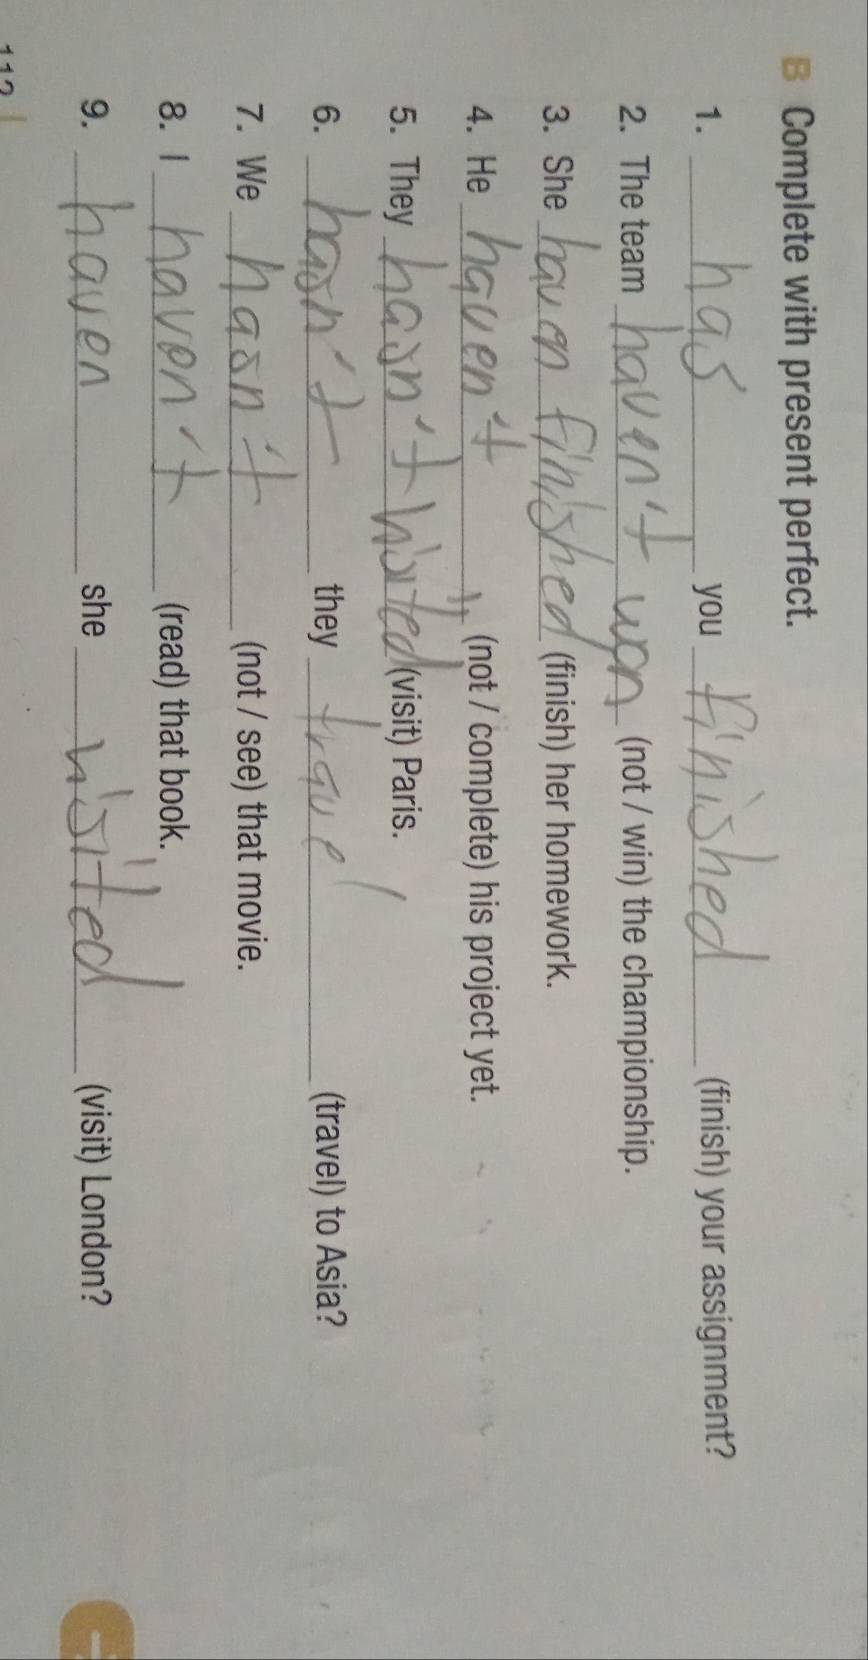 B Complete with present perfect.
1. has you finished (finish) your assignment?
2. The team haven't won (not / win) the championship.
3. She haven finished (finish) her homework.
4. He haven't (not / complete) his project yet.
5. They hasn't visited (visit) Paris.
6. hasn't they travel (travel) to Asia?
7. We hasn't (not / see) that movie.
8. I haven't (read) that book.
9. haven she visited (visit) London?
112